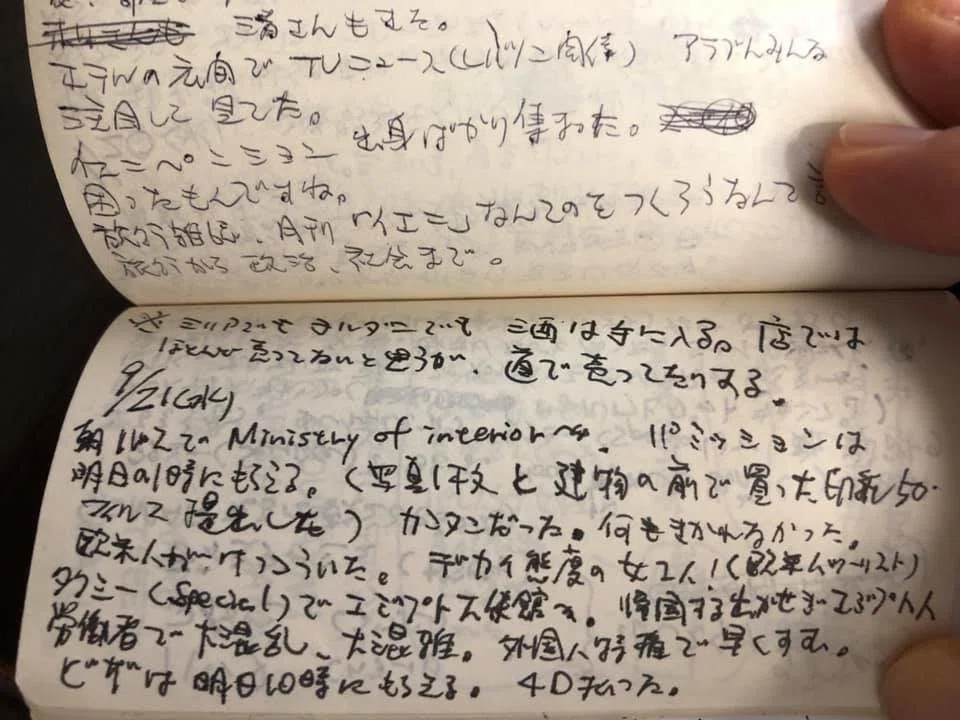 さんもきた。
ホテルの広間でTVニュース(レバノン関係) アラブ人みんな
注目して見てた。
出身ばかり集まった。
困ったもんですね。
「イエニ」なんてのをつくろうなんて
旅行雑誌、月刊
旅行から政治、社会まで。
※ でも でも 酒は手に入る。店では
ほとんど売ってないと思うが、道で売ってたりする。
9/21(水)
朝 バスで Ministry of interior へ。パミッションは
明日の1時にもらえる。(写真1枚と建物の前で買った印紙50
フィルス提出した) カンタンだった。何もきかれなかった。
欧米人がけっこういた。デカイ態度の女2人!(欧米人ツーリスト)
タクシー(Special)でエジプト大使館へ。帰国する出かせぎエジプト人
労働者で大混乱、大混雑。外国人特権で早くすむ。
ビザは明日10時にもらえる。4D払った。